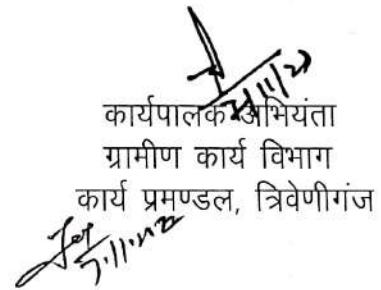 कार्यपालक अभियंता
ग्रामीण कार्य विभाग
कार्य प्रमण्डल, त्रिवेणीगंज